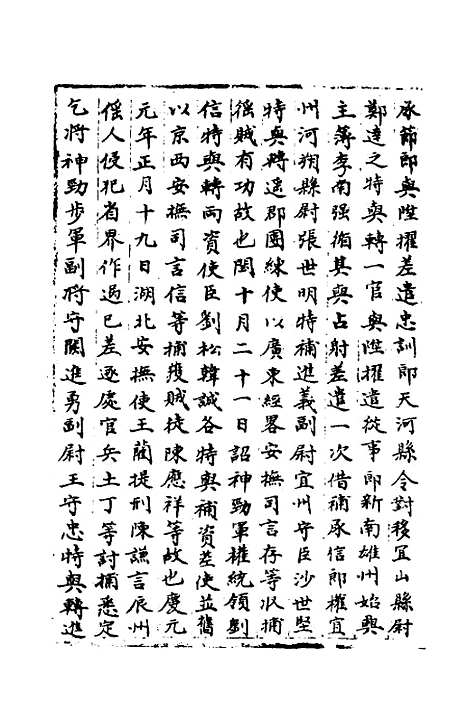 承節郎與陞擢差遣忠訓郎天河縣令對移宜山縣尉
鄭達之特與轉一官與陞擢遣從事郎新南雄州始興
主簿李南强循其與占射差遣一次借補承信郎權宜
州河朔縣尉張世明特補進義副尉宜州守臣沙世堅
特與轉遥郡團練使以廣東經畧安撫司言存等收捕
徭賊有功故也閏十月二十一日詔神勁軍權統領劉
信特與轉兩資使臣劉松韓誠各特與補資差使並舊
以京西安撫司言信等捕獲賊徒陳應祥等故也慶元
元年正月十九日湖北安撫使王藺提刑陳謙言辰州
傜人侵犯省界作過已差逐處官兵土丁等討捕悉定
乞將神勁步軍副將守闕進勇副尉王守忠特與轉進